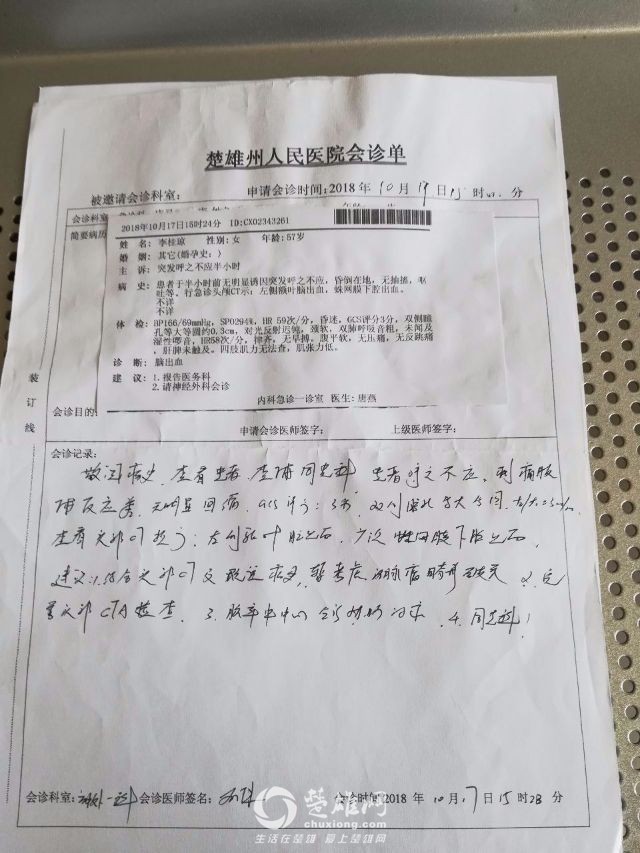 楚雄州人民医院会诊单
被邀请会诊科室: 申请会诊时间:2018年10月17日15时 分
会诊科室
简要病历
2018年10月17日15时24分 ID:CX02343261
姓 名:李桂琼 性别:女 年龄:57岁
婚 姻:其它(婚孕史:)
主 诉:突发呼之不应半小时
病 史:患者于半小时前无明显诱因突发呼之不应,昏倒在地,无抽搐,呕
吐等。行急诊头颅CT示:左侧额叶脑出血,蛛网膜下腔出血。
不详
不详
体 检:BP166/69mmHg,SPO294%,HR 59次/分,昏迷,GCS评分3分,双侧瞳
孔等大等圆约0.3cm,对光反射迟钝,颈软,双肺呼吸音粗,未闻及
湿性啰音,HR58次/分,律齐,无早搏,腹平软,无压痛,无反跳痛
,肝脾未触及。四肢肌力无法查,肌张力低。
诊 断:脑出血
建 议:1.报告医务科
2.请神经外科会诊
内科急诊一诊室 医生:唐燕
会诊目的:
申请会诊医师签字: 上级医师签字:
装订线
会诊记录:
敬阅病史,查看患者,查体同贵科,患者呼之不应,刺痛肢
体反应差,无明显回痛,GCS评分:3分,双侧瞳孔等大等圆,
查看头部CT提示:左侧额叶脑出血,广泛蛛网膜下腔出血,
建议:1.结合头部CT及 病史,暂考虑动脉瘤 破裂 2.完
善头部CTA检查 3. 中心 4.同贵科!
会诊科室:神外一科 会诊医师签名: 会诊时间2018年10月17日15时28分
楚雄网
chuxiong.com
生活在楚雄 爱上楚雄网